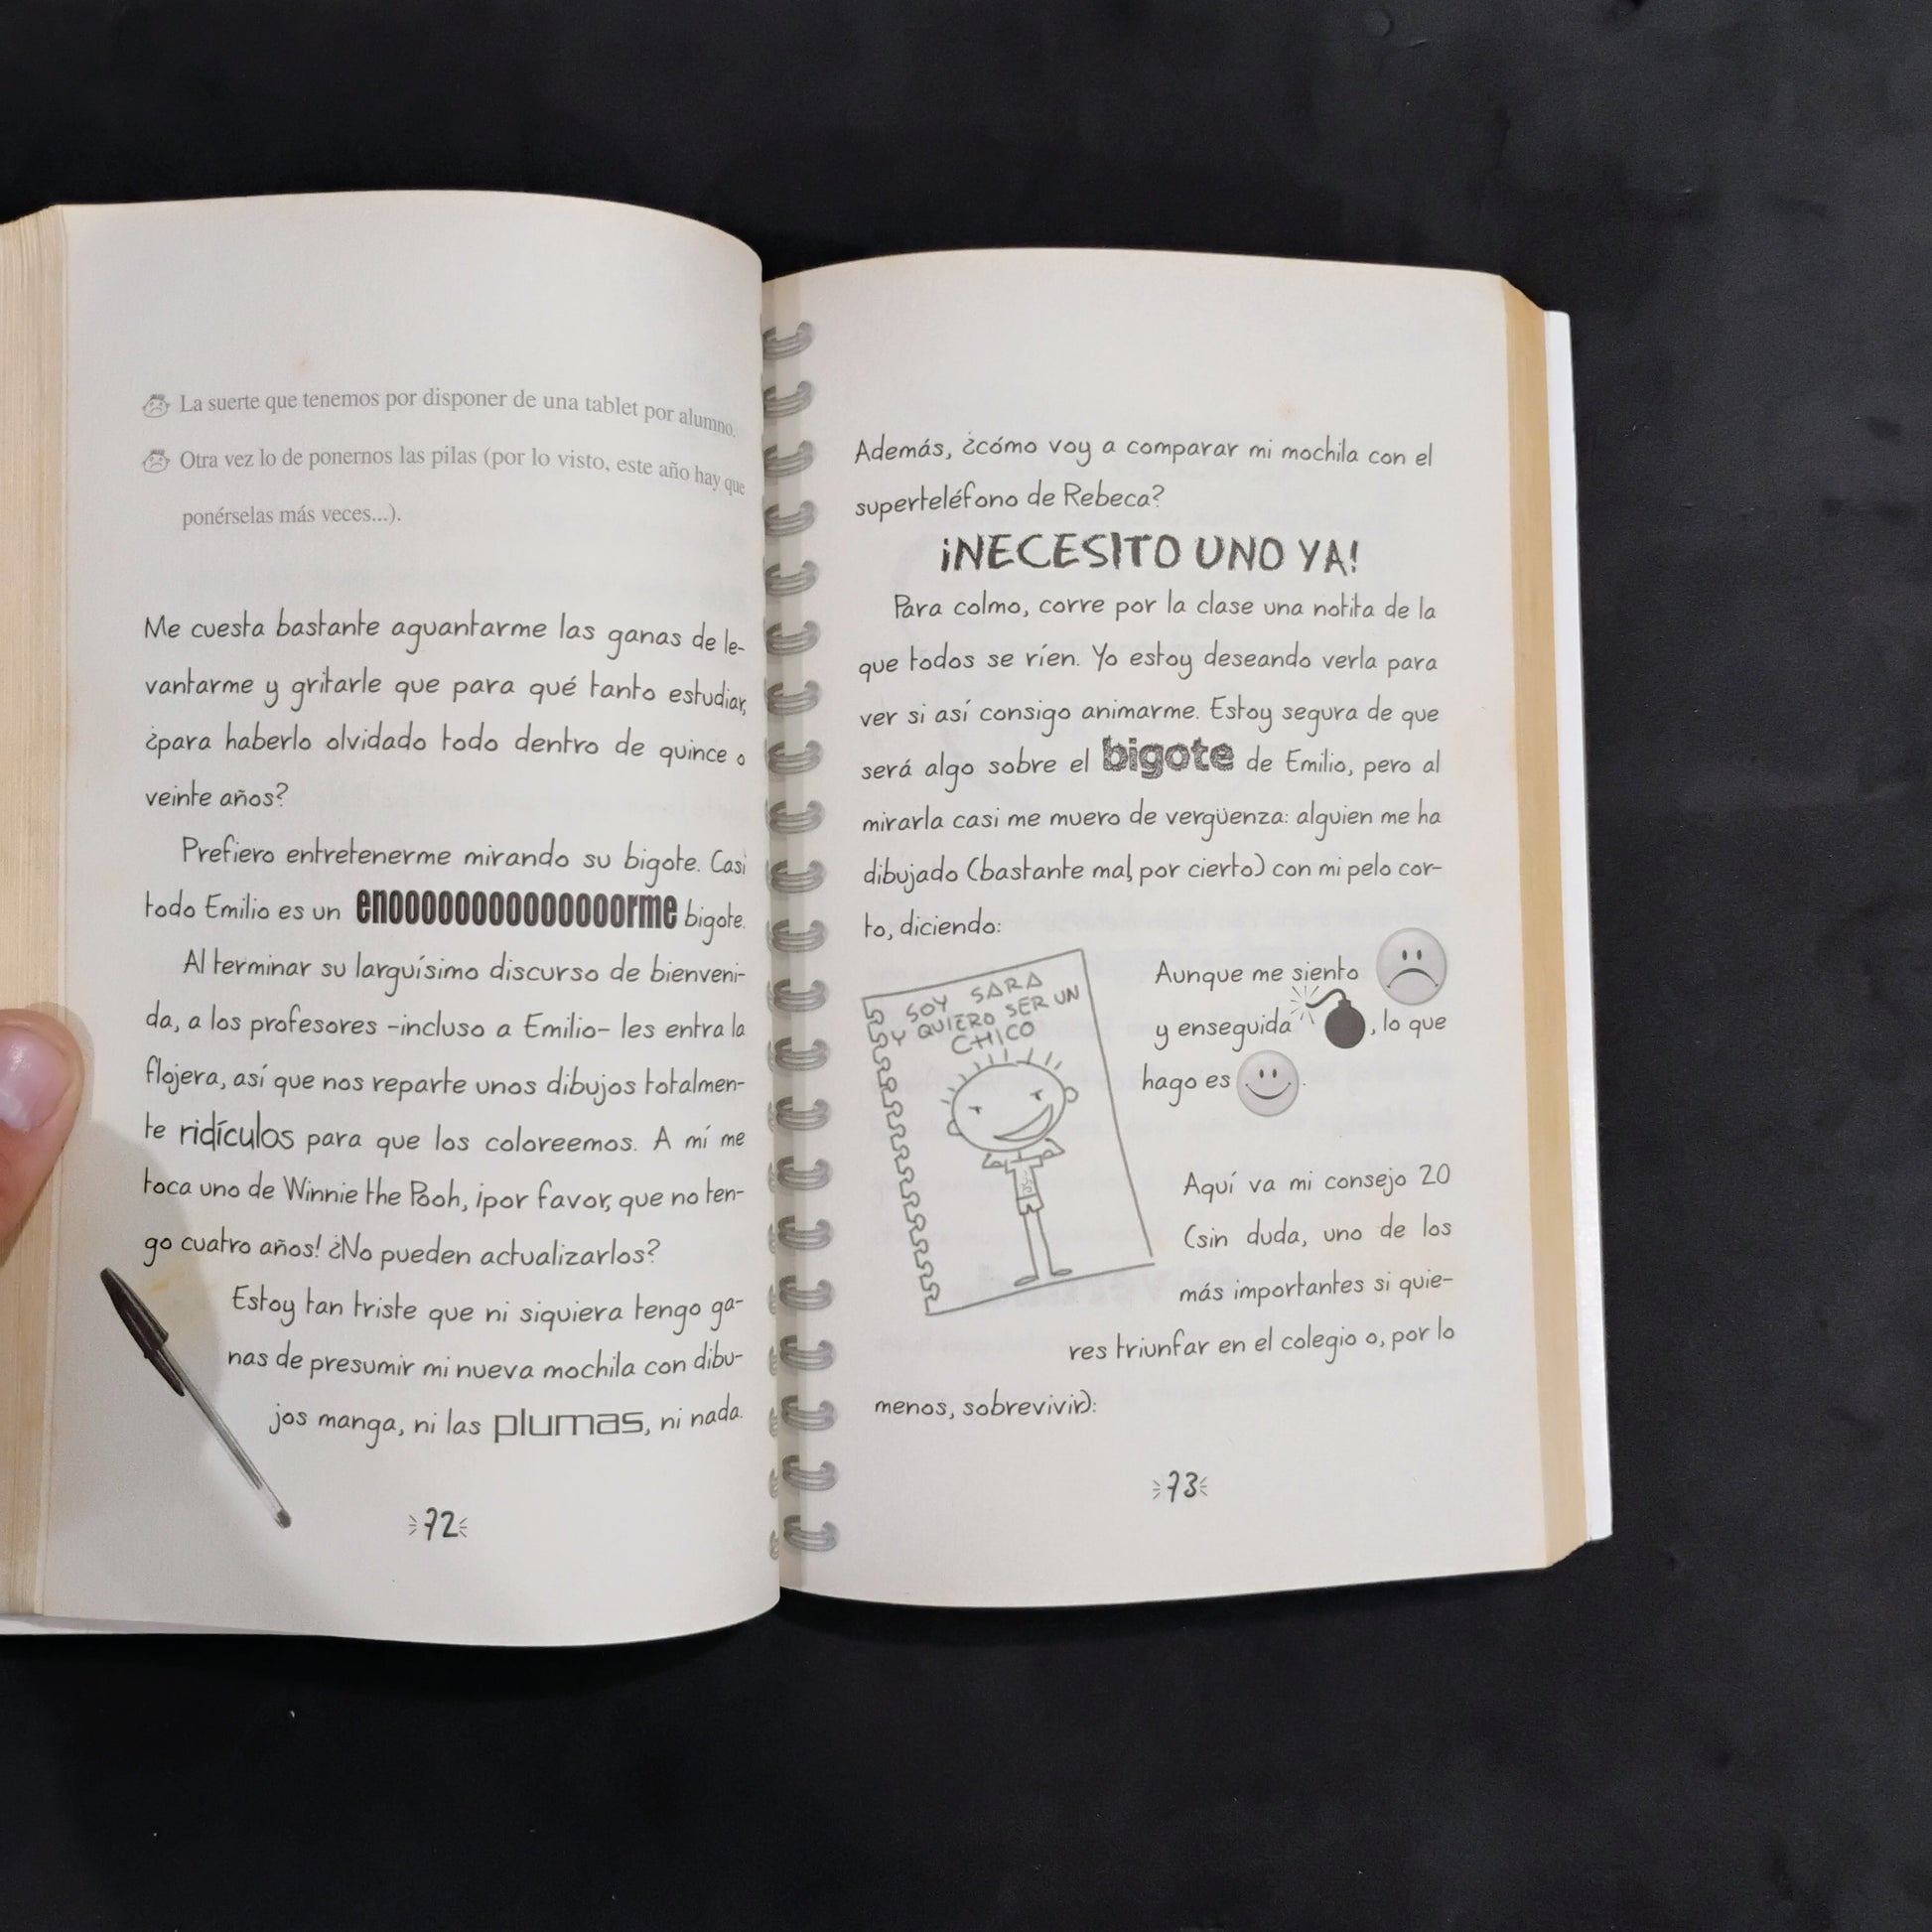 La suerte que tenemos por disponer de una tablet por alumno.
Otra vez lo de ponernos las pilas (por lo visto, este año hay que
ponérselas más veces...).
Me cuesta bastante aguantarme las ganas de le-
vantarme y gritarle que para qué tanto estudiar,
¿para haberlo olvidado todo dentro de quince o
veinte años?
Prefiero entretenerme mirando su bigote. Casi
todo Emilio es un enooooooooooooooorme bigote.
Al terminar su larguísimo discurso de bienveni-
da, a los profesores -incluso a Emilio- les entra la
flojera, así que nos reparte unos dibujos totalmen-
te ridículos para que los coloreemos. A mí me
toca uno de Winnie the Pooh, ¡por favor, que no ten-
go cuatro años! ¿No pueden actualizarlos?
Estoy tan triste que ni siquiera tengo ga-
nas de presumir mi nueva mochila con dibu-
jos manga, ni las plumas, ni nada.
72
Además, ¿cómo voy a comparar mi mochila con el
superteléfono de Rebeca?
¡NECESITO UNO YA!
Para colmo, corre por la clase una notita de la
que todos se ríen. Yo estoy deseando verla para
ver si así consigo animarme. Estoy segura de que
será algo sobre el bigote de Emilio, pero al
mirarla casi me muero de vergüenza: alguien me ha
dibujado (bastante mal, por cierto) con mi pelo cor-
to, diciendo:
SOY SARA
Y QUIERO SER UN
CHICO
Aunque me siento
y enseguida , lo que
hago es .
Aquí va mi consejo 20
(sin duda, uno de los
más importantes si quie-
res triunfar en el colegio o, por lo
menos, sobrevivir):
73